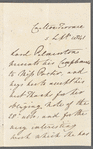 Carlton Terrace
Lord Palmerston
presents his Compliments
to Miss Porter and
begs her to accept his
best Thanks for her
obliging Note of the
and for the
very interesting
which she has